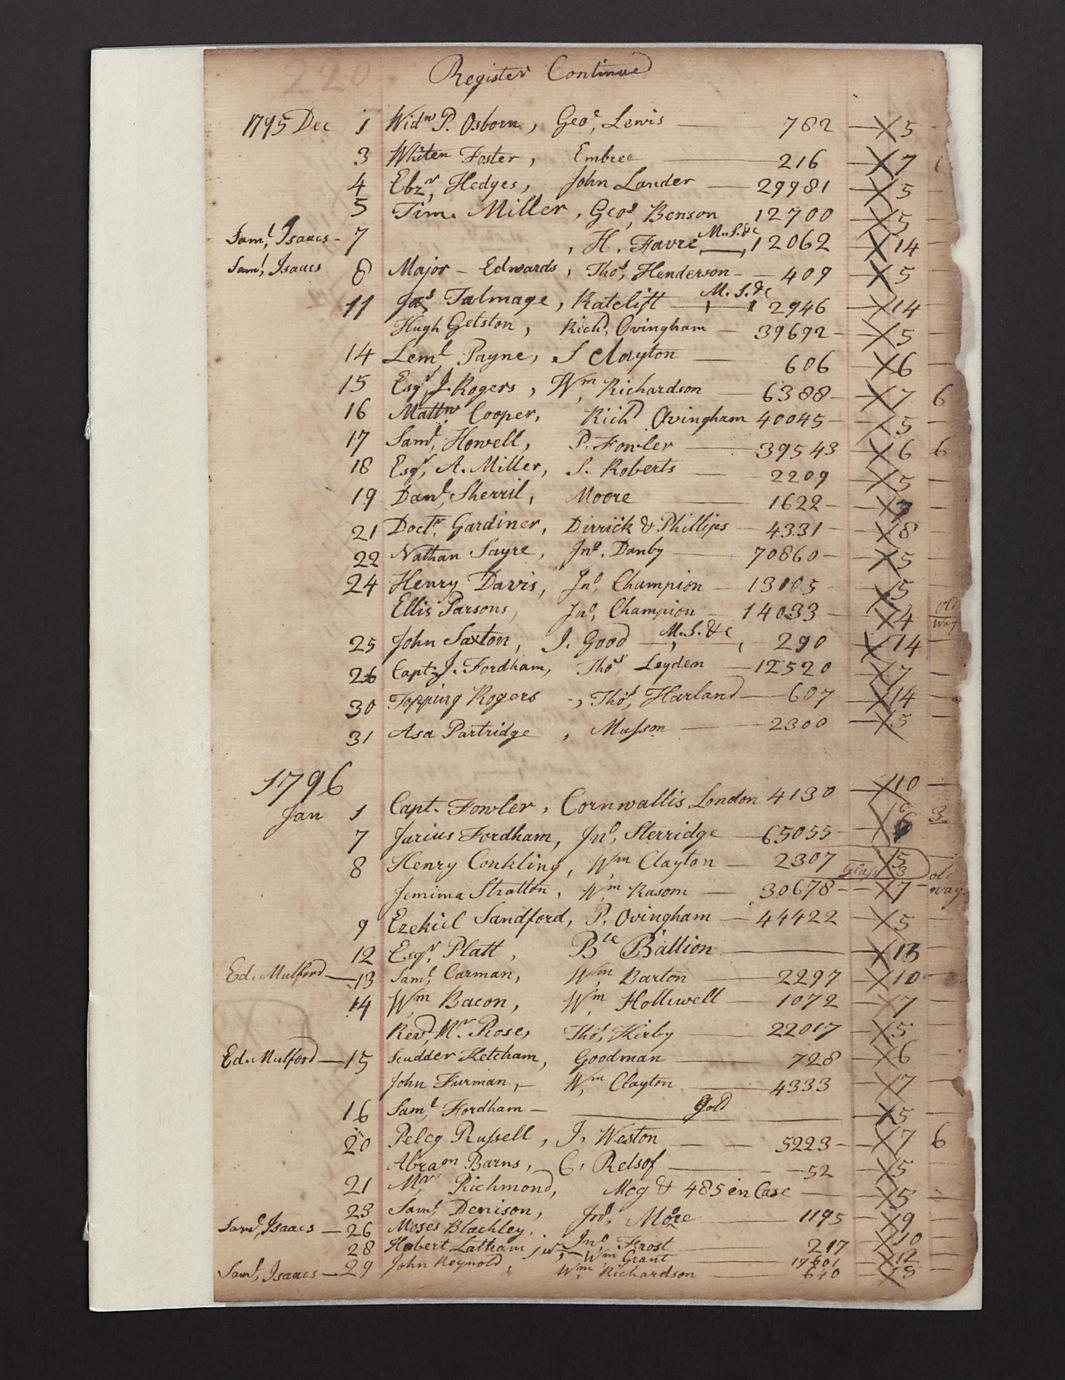 220
Register Continued
1795 Dec 1 Widw P. Osborn, Geo, Lewis — 782 — X 5
3 Whiten Foster, Embree — 216 — X 7
4 Ebzr, Hedges, John Lander — 29981 — X 5
5 Tim. Miller, Geo, Benson 12700 X 5
Saml, Isaacs - 7 , H. Favre M.S.&c 12062 X 14
Saml, Isaacs 8 Major - Edwards, Thos, Henderson - 409 — X 5
11 Jas, Talmage, Ratclift M.S.&c 2946 — X 14
Hugh Gelston, Richd, Ovingham — 39692 — X 5
14 Leml Payne, S Clayton — 606 X 6
15 Esqr J. Rogers, Wm, Richardson 6388 — X 7 6
16 Mattw Cooper, Richd Ovingham 40045 — X 5
17 Saml, Howell, P. Fowler — 39543 X 6 6
18 Esqr, A. Miller, S. Roberts — 2209 X 5
19 Danl, Sherril, Moore — 1622 — X
21 Doctr, Gardiner, Dirrick & Phillips — 4331 — X 8
22 Nathan Sayre, Jno, Danby — 70860 — X 5
24 Henry Davis, Jno, Champion — 13105 X 5
Ellis Parsons, Jno, Champion — 14033 X 4 old way
25 John Saxton, J. Good — M.S.&c 290 X 14
26 Capt, J. Fordham, Thos Leyden — 12520 X 7
30 Topping Rogers -, Thos, Harland — 607 X 14
31 Asa Partridge, Musson — 2300 — X 5
1796
Jan 1 Capt. Fowler, Cornwallis London 4130 — X 10
7 Jarius Fordham, Jno, Sterridge — 65055 — X 3
8 Henry Conkling, Wm Clayton — 2307 Glass X 5 3 old
Jemima Stratton, Wm Rasom — 30678 — X 7 - way
9 Ezekiel Sandford, P. Ovingham — 44422 — X 5
12 Esqr, Platt, Bte Ballion — X 13
Ed. Mulford — 13 Saml, Carman, Wm, Barton — 2297 — X 10
14 Wm Bacon, Wm, Holliwell — 1072 — X 7
Revd, Mr. Rose, Thos, Kirby — 22017 — X 5
Ed. Mulford — 15 Scudder Ketcham, Goodman — 728 — X 6
John Furman, - Wm, Clayton — 4333 X 7
16 Saml Fordham — Gold X 5
20 Peleg Russell, J. Weston — 5223 — X 7 6
Abram Barns, C. Relsof — 52 X 5
21 Mr Richmond, Mog & 485 in Case — X 5
23 Saml, Denison, Jno, More 1195 X 9
Saml, Isaacs — 26 Moses Blachley, Jno, Frost 217 X 10
28 Hubert Latham, Wm Grant X 12
Saml, Isaacs — 29 John Reynold, Wm Richardson — 640 X